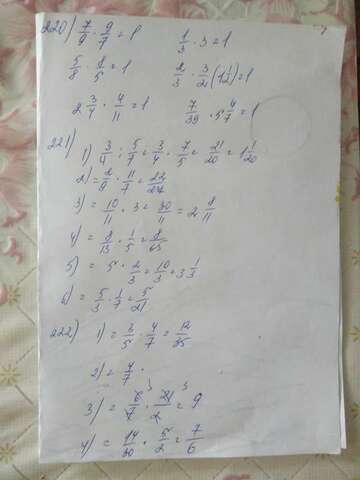 220) 7/9 · 9/7 = 1    1/3 · 3 = 1
5/8 · 8/5 = 1    2/3 · 3/2 (1 1/2) = 1
2 3/4 · 4/11 = 1    7/39 · 5 4/7 = 1
221)
1) 3/4 : 5/7 = 3/4 · 7/5 = 21/20 = 1 1/20
2) = 2/9 · 11/7 =
3) = 10/11 · 3 = 30/11 = 2 8/11
4) = 8/13 · 1/5 = 8/65
5) = 5 · 2/3 = 10/3 = 3 1/3
6) = 5/3 · 1/7 = 5/21
222) 1) = 3/5 · 4/7 = 12/35
2) = 4/7 ·
3) = 6/7 · 21/2 = 9
4) = 14/30 · 5/2 = 7/6